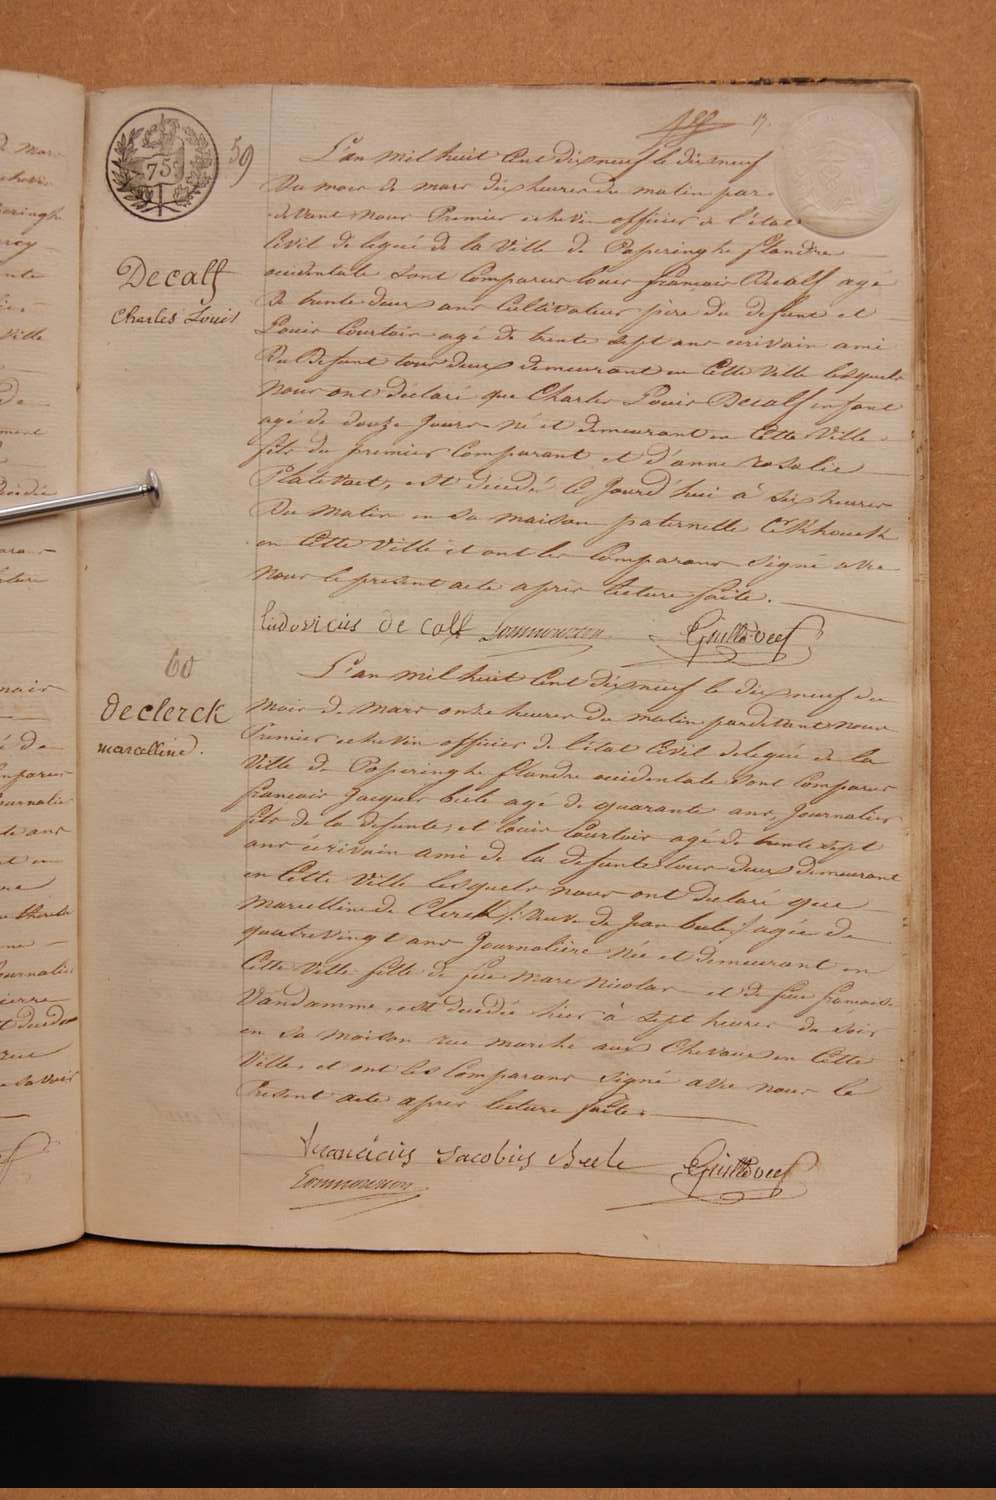 75
59
19.
L'an mil huit Cent dix neuf le dix neuf
Du mois de mars dix heures du matin par-
devant Nous Premier echevin officier de l'état
Civil delegué de la Ville de Poperinghe flandre
occidentale sont Comparus Louis françois Decalf agé
De trente deux ans Cultivateur père du defunt et
Louis Courtois agé de trente sept ans ecrivain ami
Du Defunt tous deux demeurant en Cette Ville lesquels
Nous ont déclaré que Charles Louis Decalf enfant
agé de douze jours né et demeurant en Cette Ville
fils du premier Comparant et d'anne rosalie
est décédé Ce Jourd'hui à six heures
Du matin en sa maison paternelle
en Cette Ville et ont les Comparans Signé avec
Nous le present acte après lecture faite.
Decalf
Charles Louis
ludovicus de calf
60
declerck
marcelline.
L'an mil huit Cent dix neuf le dix neuf du
Mois de Mars onze heures du matin pardevant nous
Premier echevin officier de l'état Civil delegué de la
Ville de Poperinghe flandre occidentale sont Comparus
francois Jacques bule agé de quarante ans, Journalier
fils de la defunte, et Louis Courtois agé de trente sept
ans écrivain ami de la defunte tous deux demeurant
en Cette Ville lesquels nous ont declaré que
Marcelline de Clerck /: Veuve de Jean bule :/ agée de
quatrevingt ans Journalière Née et demeurant en
Cette Ville fille de feu Marc Nicolas et de feue françoise
Vandamme, est decedée hier à sept heures du soir
en sa maison rue marché aux Chevaux en Cette
Ville, et ont les Comparans Signé avec nous le
Present acte après lecture faite.
franciscus Jacobus Buele